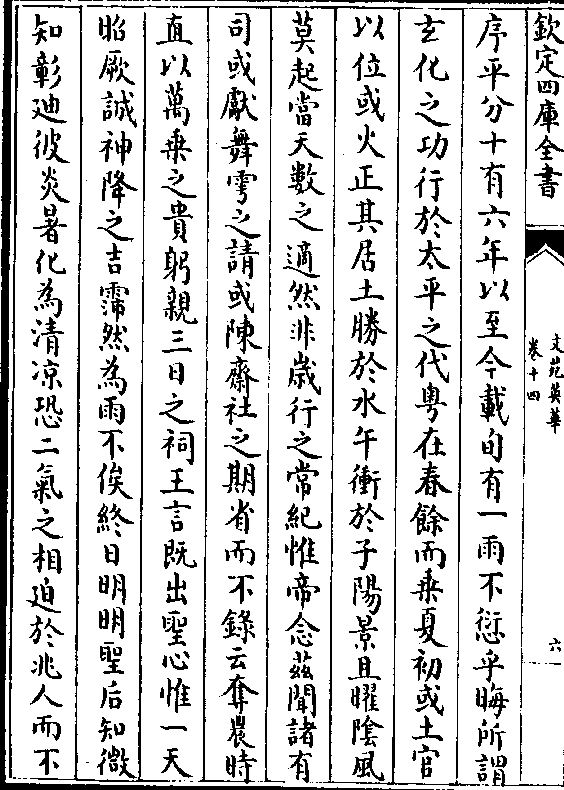 欽定四庫全書
文苑英華
卷十四
六
序平分十有六年以至今載旬有一雨不愆乎晦所謂
玄化之功行於太平之代粤在春餘而乗夏初或土官
以位或火正其居土勝於水午衝於子陽景且曜隂風
莫起當天數之適然非歳行之常紀惟帝念茲聞諸有
司或獻舞雩之請或陳齋社之期省而不錄云奪農時
直以萬乗之貴躬親三日之祠王言既出聖心惟一天
昭厥誠神降之吉霈然為雨不俟終日明明聖后知微
知彰廸彼炎暑化為清凉恐二氣之相迫於兆人而不